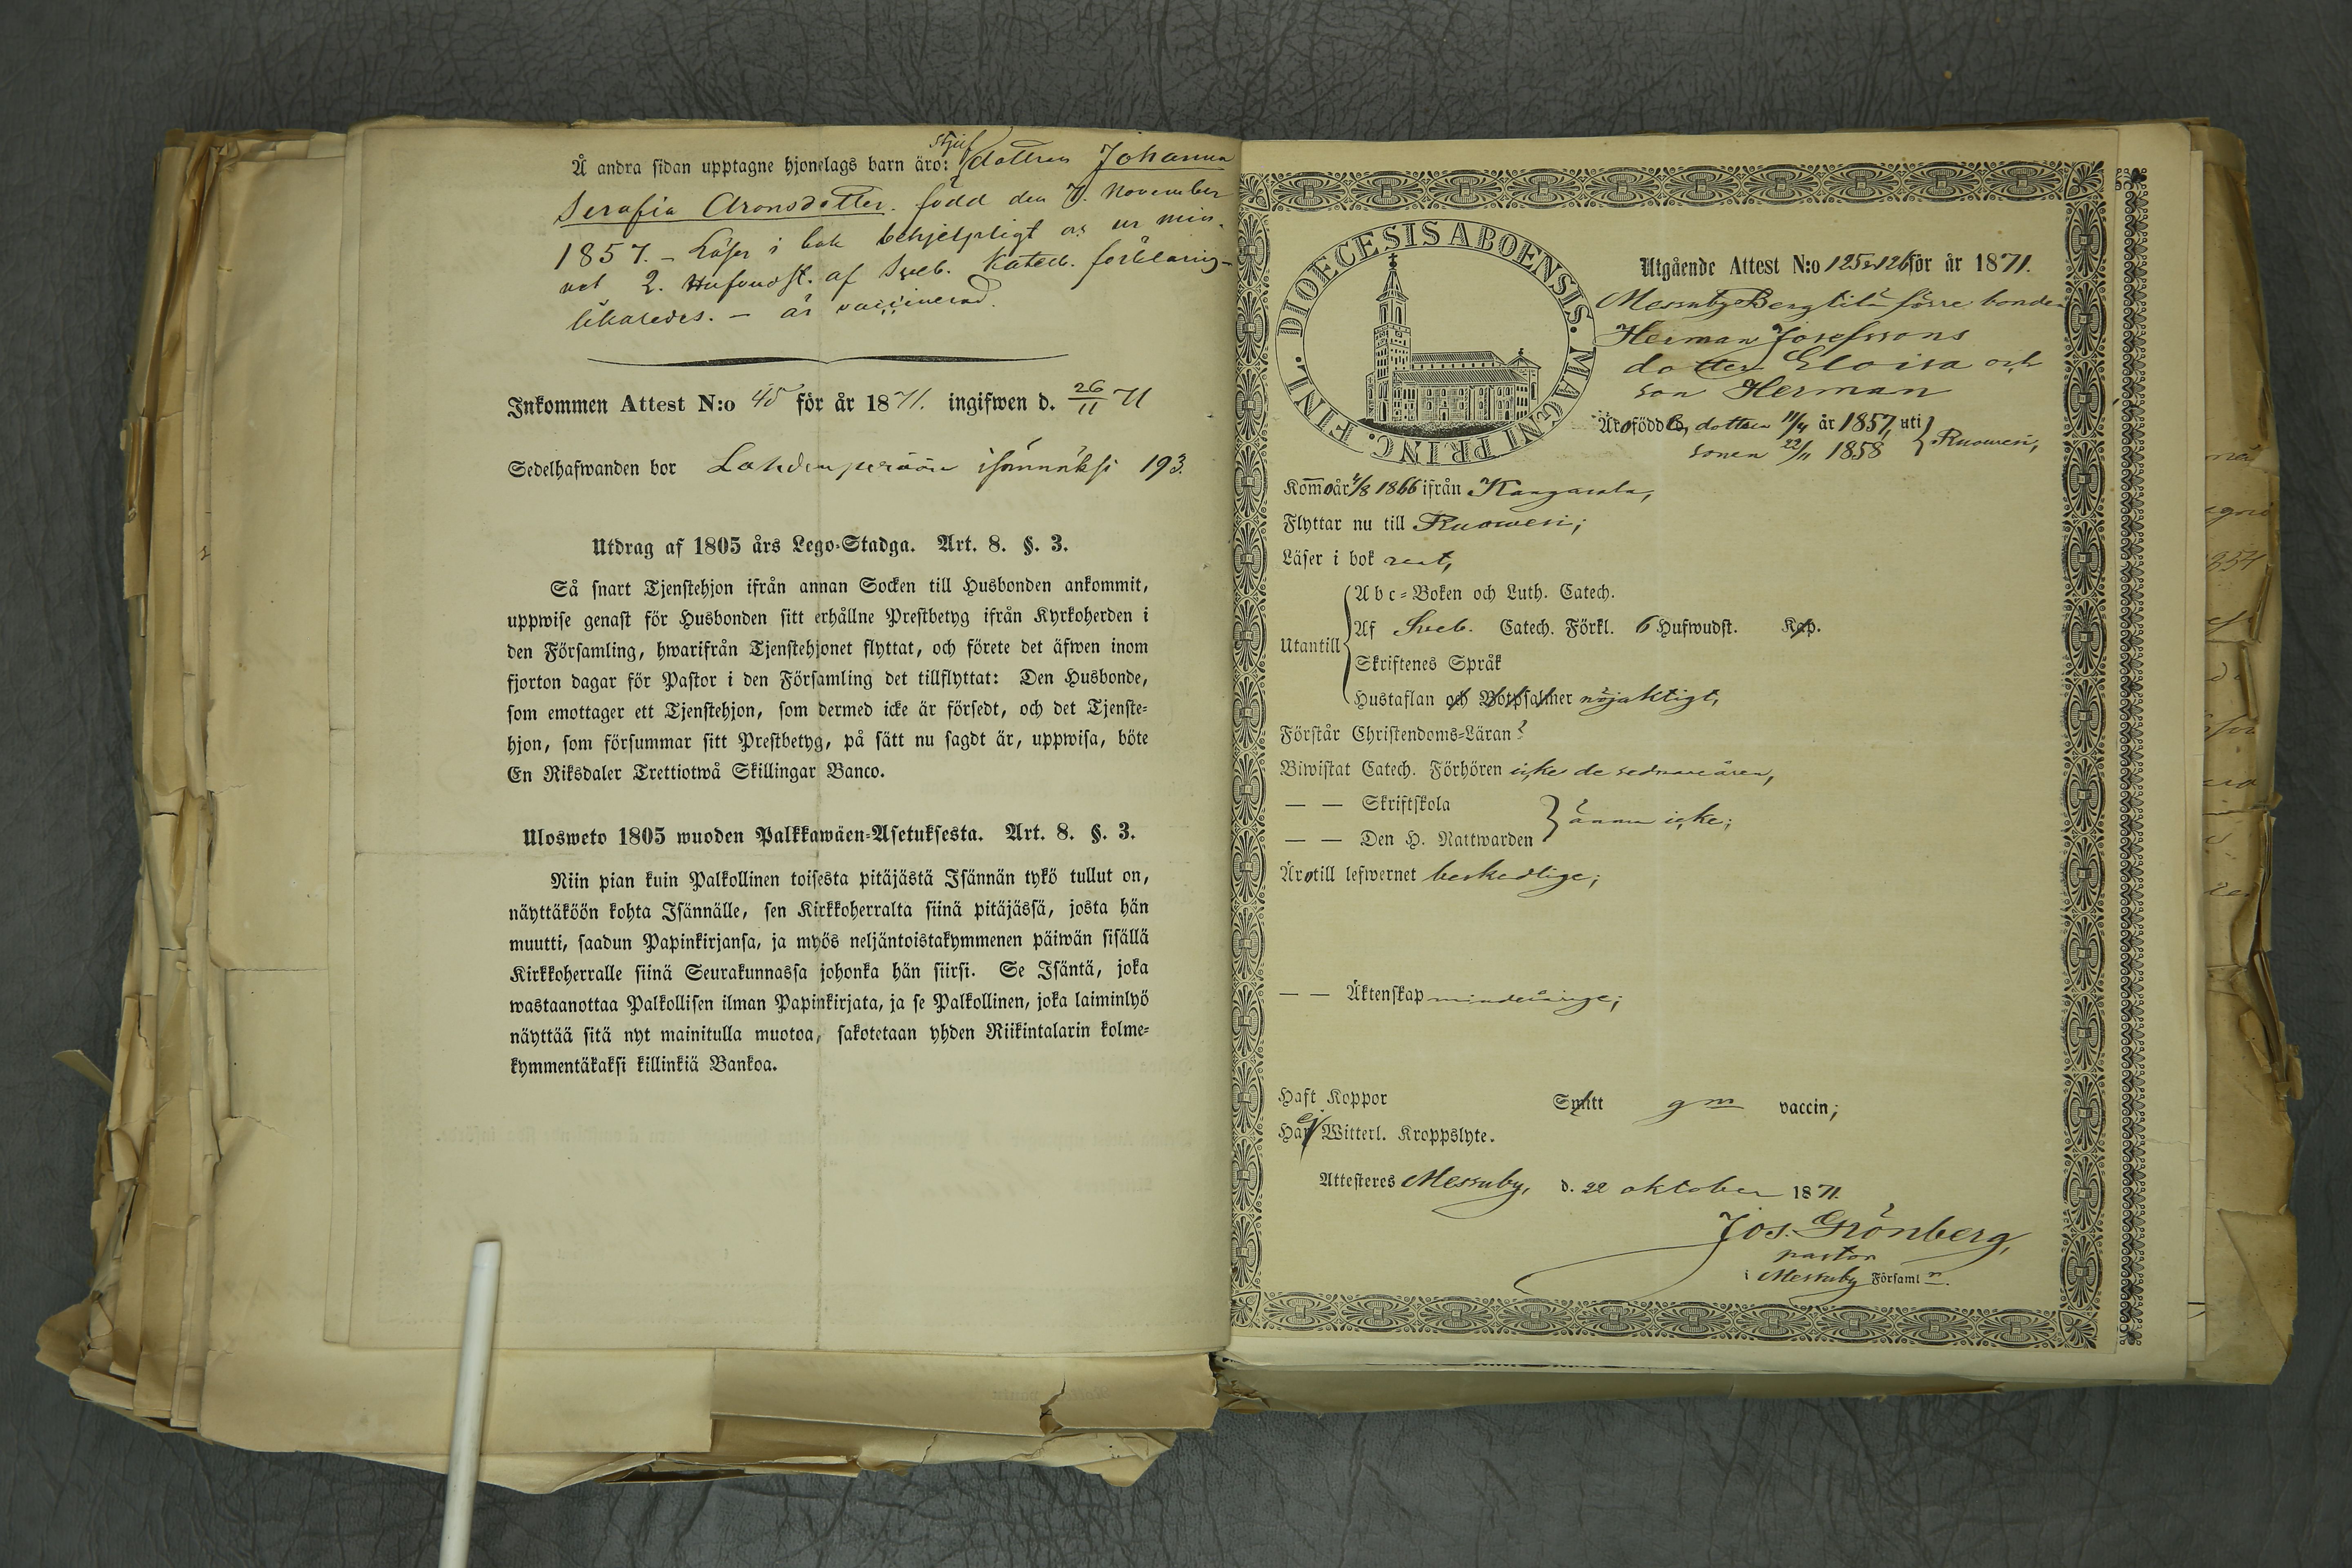 Å andra sidan upptagne hjonelags barn äro: styf dottren Johanna
Serafia Aronsdotter. född den 7. November
1857. – Läser i bok behjelpligt as ur min-
net 2. Hufvudst. af Sveb. Katech. förklaring
likaledes. – är vaccinerad.
Inkommen Attest N:o 45 för år 1871. ingifwen d. 26/11 71
Sedelhafwanden bor Lahdenperään isännäksi 193.
Utdrag af 1805 års Lego-Stadga. Art. 8. §. 3.
Så snart Tjenstehjon ifrån annan Socken till Husbonden ankommit,
uppwise genast för Husbonden sitt erhållne Prestbetyg ifrån Kyrkoherden i
den Församling, hwarifrån Tjenstehjonet flyttat, och förete det äfwen inom
fjorton dagar för Pastor i den Församling det tillflyttat: Den Husbonde,
som emottager ett Tjenstehjon, som dermed icke är försedt, och det Tjenste-
hjon, som försummar sitt Prestbetyg, på sätt nu sagdt är, uppwisa, böte
En Riksdaler Trettiotwå Skillingar Banco.
Ulosweto 1805 wuoden Palkkawäen-Asetuksesta. Art. 8. §. 3.
Niin pian kuin Palkollinen toisesta pitäjästä Isännän tykö tullut on,
näyttäköön kohta Isännälle, sen Kirkkoherralta siinä pitäjässä, josta hän
muutti, saadun Papinkirjansa, ja myös neljäntoistakymmenen päiwän sisällä
Kirkkoherralle siinä Seurakunnassa johonka hän siirsi. Se Isäntä, joka
wastaanottaa Palkollisen ilman Papinkirjata, ja se Palkollinen, joka laiminlyö
näyttää sitä nyt mainitulla muotoa, sakotetaan yhden Riikintalarin kolme-
kymmentäkaksi killinkiä Bankoa.
DIOECESIS ABOENSIS. MAGNI PRINC. FINL.
Utgående Attest N:o 125 & 126 för år 1871.
Messuby Bergtilä förre bonden
Herman Josefssons
dotter Eloisa och
son Herman
Äro födde, dottern 11/4 år 1857, uti
sonen 22/11 1858 } Ruovesi,
Kom̅o år 4/8 1866 ifrån Kangasala,
Flyttar nu till Ruovesi;
Läser i bok rent,
Utantill
Abc-Boken och Luth. Catech.
Af Sveb. Catech. Förkl. 6 Hufwudst. Kap.
Skriftenes Språk
Hustaflan och Botpsalmer nöjaktigt,
Förstår Christendoms-Läran ?
Biwistat Catech. Förhören icke de sednare åren,
— — Skriftskola
— — Den H. Nattwarden } ännu icke;
Äro till lefwernet beskedlige;
— — Äktenskap minderårige;
Haft Koppor Smitt gm vaccin;
Har ej Witterl. Kroppslyte.
Attesteres Messuby, d. 22 oktober 1871.
Jos. Grönberg,
pastor
i Messuby Församl n.